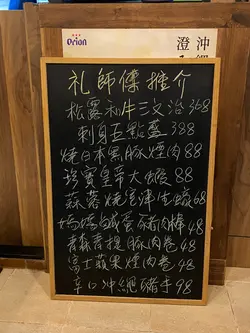 Orion
沖繩
澄
礼師傅推介
松露和牛三文治 368
刺身五點盛 388
燒日本黑豚煙肉 88
珍寶皇帝大蝦 88
蒜蓉燒宮津生蠔 68
媽媽鹹蛋豬肉棒 48
青森菩提豚肉卷 48
富士蘋果煙肉卷 48
辛口沖繩豬手 98